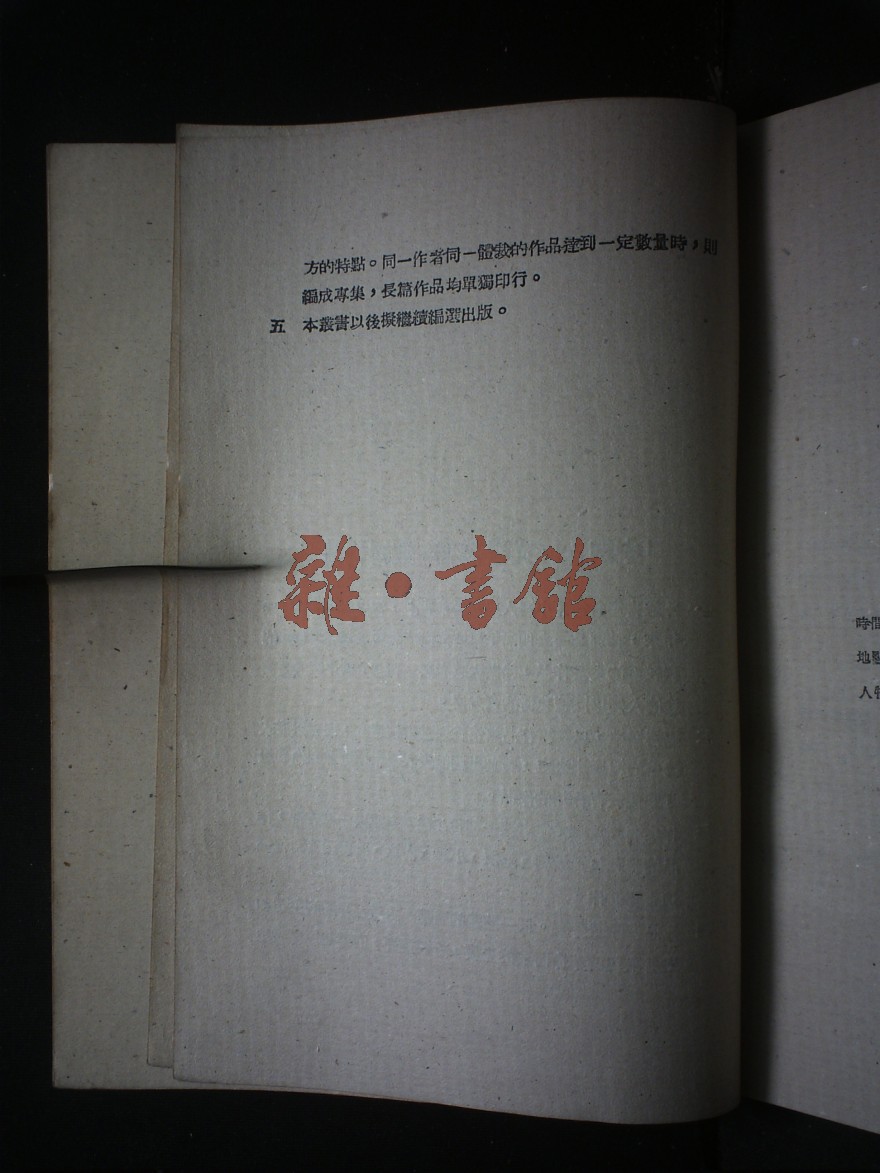 方的特點。同一作者同一體裁的作品達到一定數量時，則
編成專集，長篇作品均單獨印行。
五 本叢書以後擬繼續編選出版。
雜·書館
時間
地點
人物